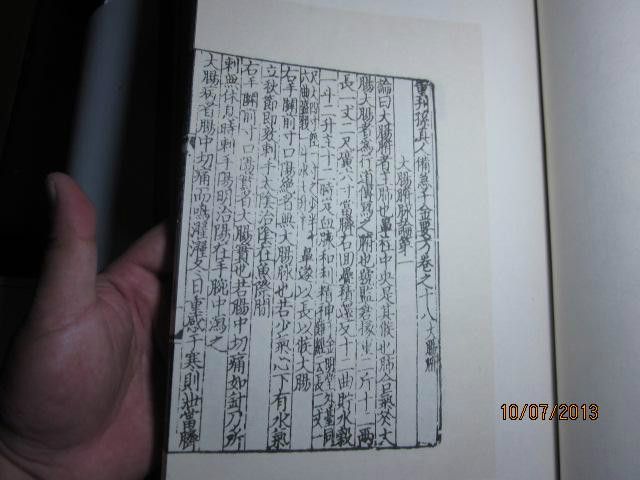 重刊孫真人備急千金要方卷之十八 大腸腑
大腸腑脉論第一
論曰大腸腑者主肺也鼻柱中央是其候也肺合氣於大
腸大腸者為行道傳瀉之腑也號監倉掾重二斤十二兩
長一丈二尺廣六寸當臍右回疊積還反十二曲貯水穀
一斗二升主十二時定血脉和利精神
鼻隧以長以候大腸
右手關前寸口陽絕者無大腸脉也苦少氣心下有水氣
立秋節即咳刺手太陰治陰在魚際間
右手關前寸口陽實者大腸實也苦腸中切痛如針刀所
刺無休息時刺手陽明治陽在手腕中瀉之
大腸病者腸中切痛而鳴濯濯冬日重感于寒則泄當臍
10/07/2013